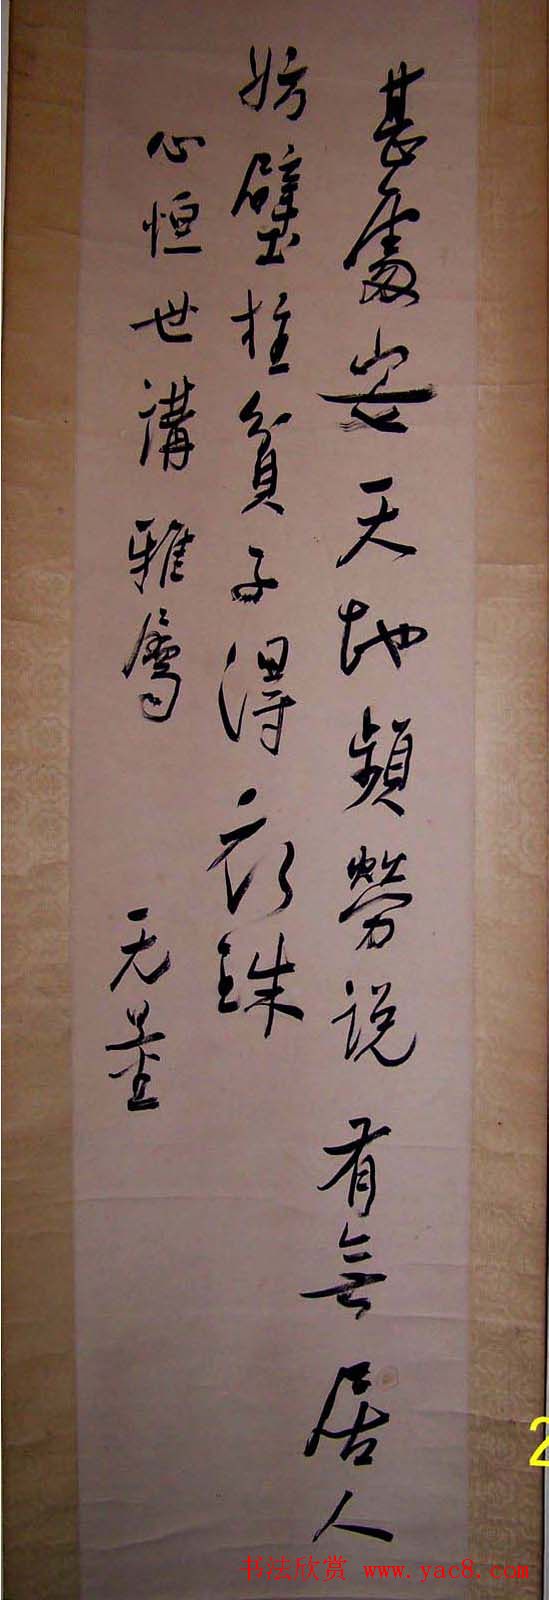 甚處安天地頻勞說有無居人
妨壁柱貧子得衣珠
心恒世講雅屬
无量
书法欣赏 www.yac8.com
2